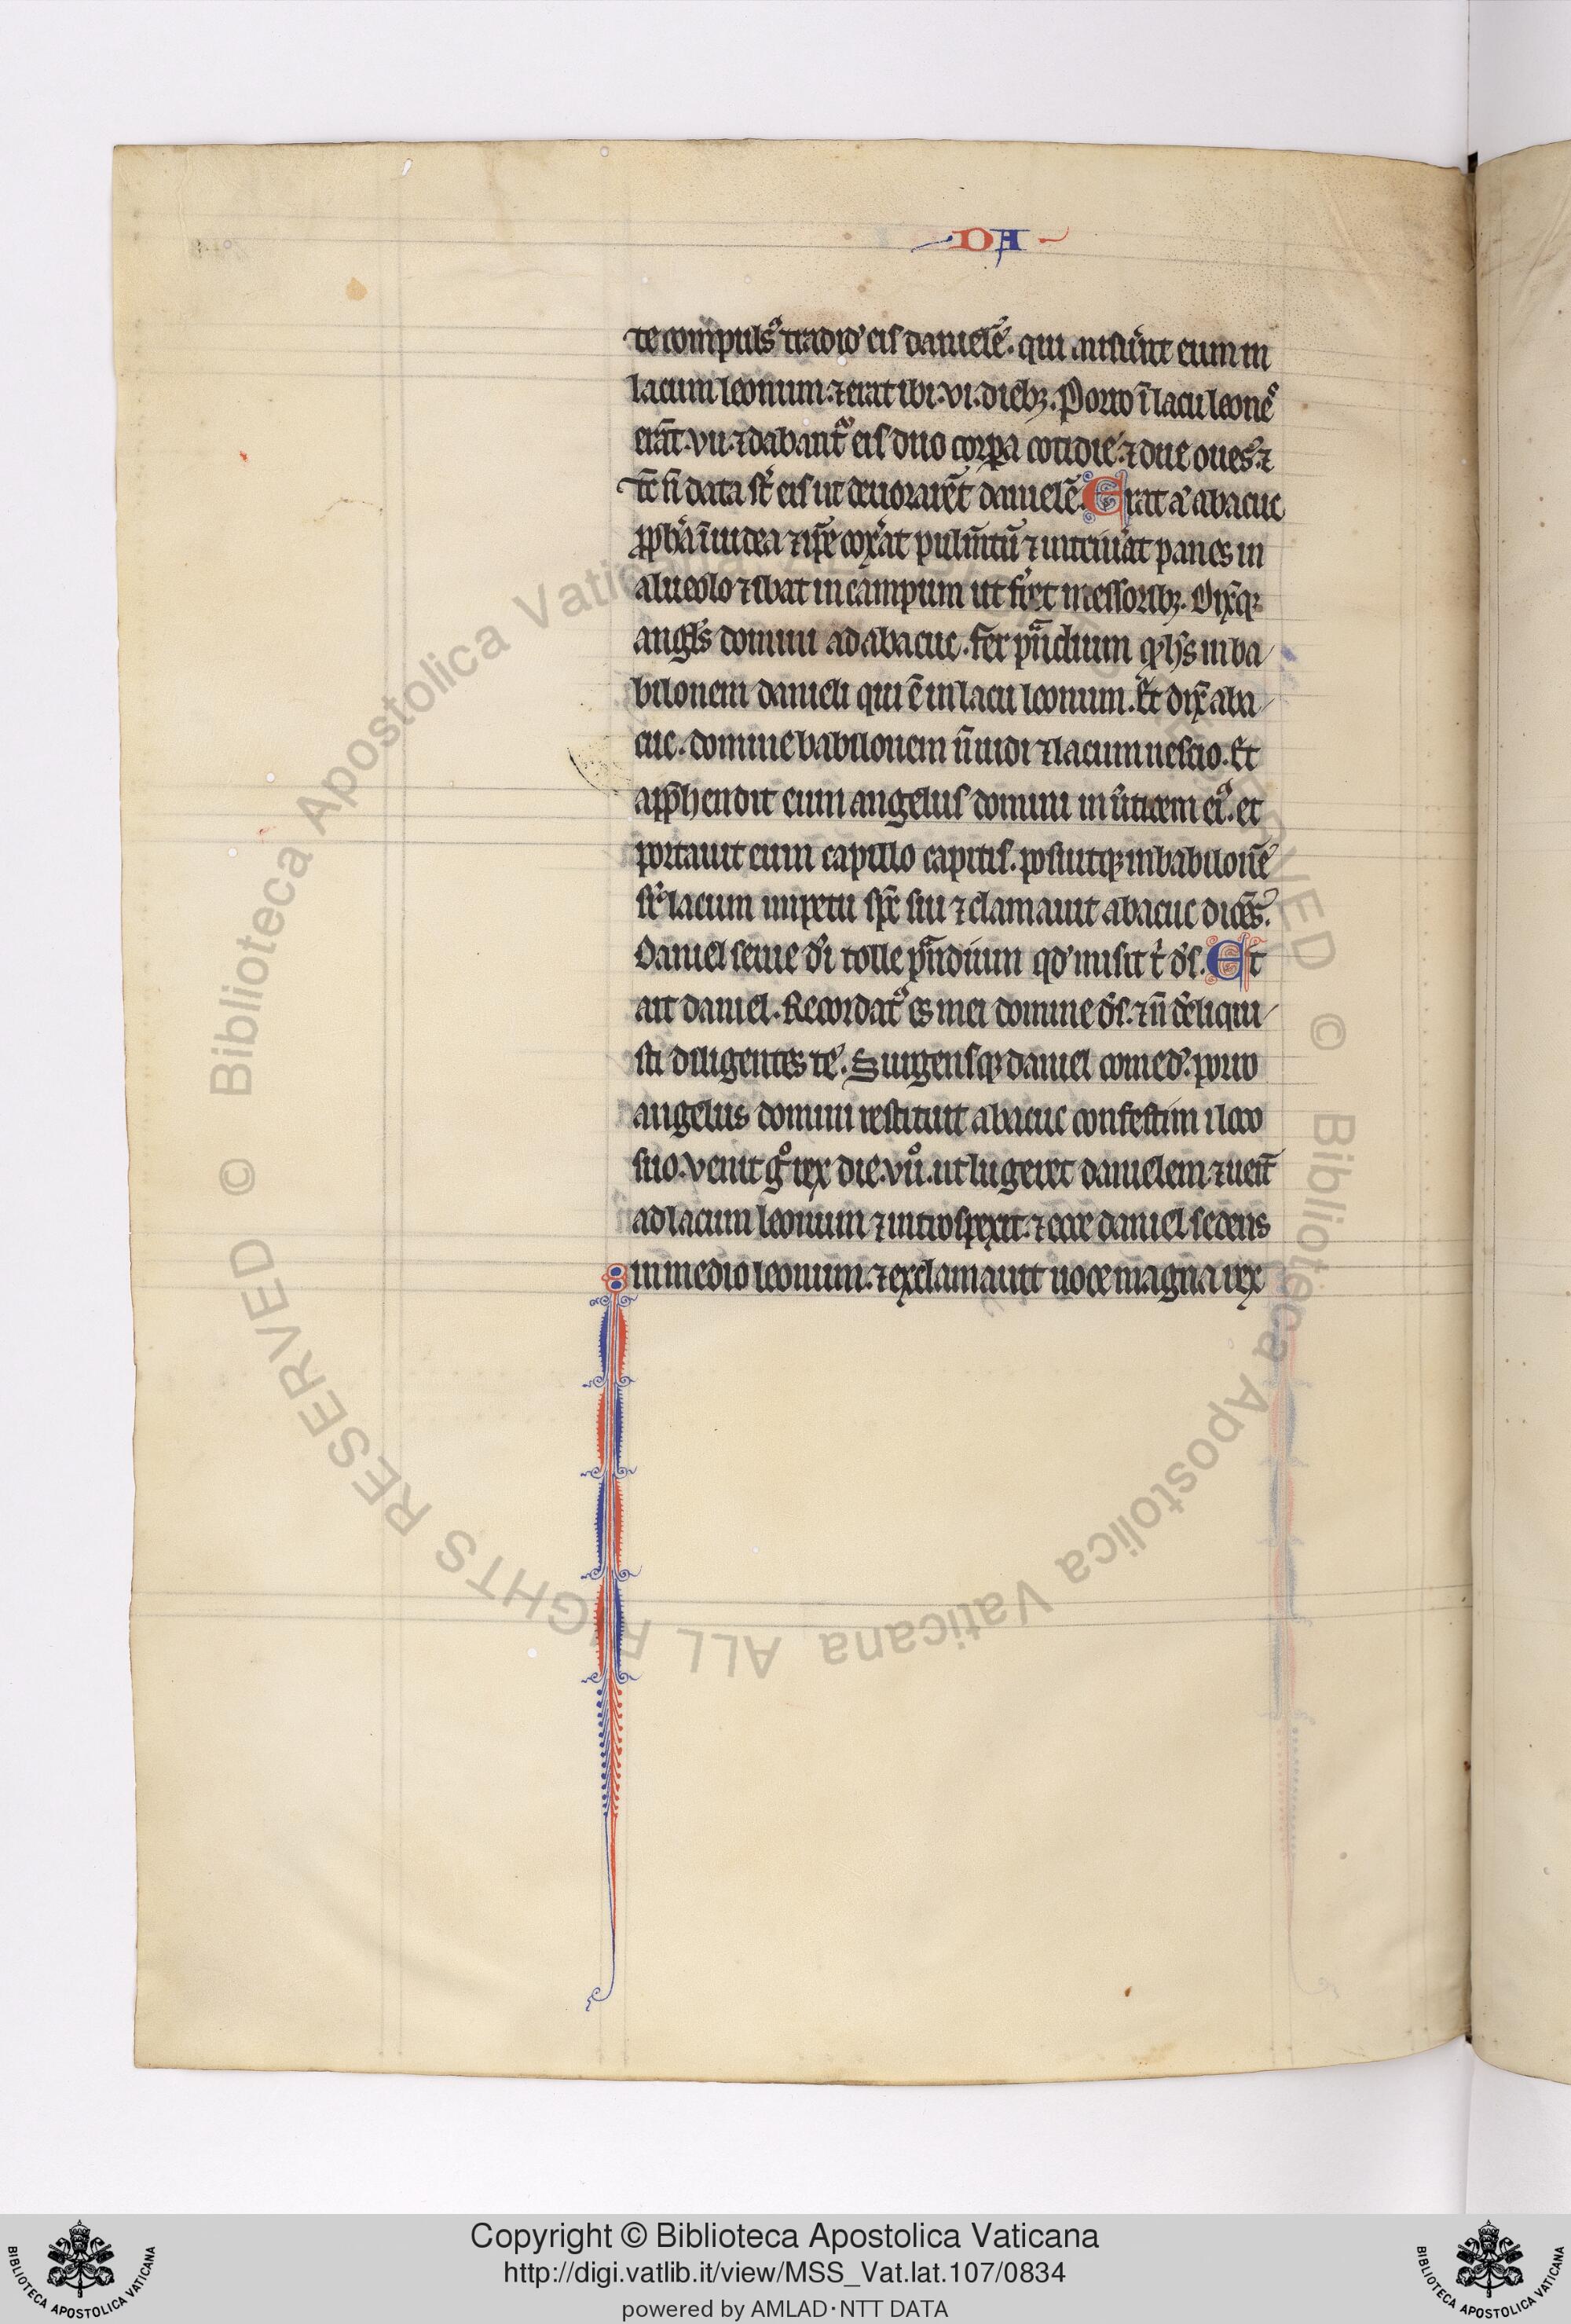 DA
te compulsꝰ tradidꝰ eis danielē. qui miſer̄ūt eum in
lacum leonum. ⁊ erat ibi. vi. diebꝫ. Porro ī lacu leoneſ
erāt. vii. ⁊ dabantᷣ eis duo corꝑa cotidie. ⁊ due oues. ⁊
tc̄ ñ data sᷠt eis ut deuorarēt danielē. Erat aͥ abacuc
ꝓpħa ī iudea ⁊ iꝑe coxͣat pulm̄tū ⁊ intͥuat panes in
alueolo ⁊ ibat in campum ut fer̄et messoribꝫ. Dix̄qꝫ
angl̄s domini ad abacuc. Fer pͣndium qͩ hēs in ba
bilonem danieli qui ē in lacu leonum. Et dix̄ aba
cuc. domine babilonem ñ uidi ⁊ lacum nescio. Et
appͣhendit eum angelus domini in u̓ticem eiꝰ. et
portauit eum capillo capitis. posuitqꝫ in babilonē
sͬ lacum impetu spͨ sui ⁊ clamauit abacuc dicēs.
Daniel serue dī tolle pͣndium qđ misit tͥ dͫs. Et
ait daniel. Recordatꝰ es mei domine dͫs. ⁊ ñ dͤliqui
sti diligentes te. Surgensqꝫ daniel comedͭ. porro
angelus domini restituit abacuc confestim ī loco
suo. Venit gͦ rex die. viiͦ. ut lugeret danielem. ⁊ uenͭ
ad lacum leonum ⁊ introspexit. ⁊ ecce daniel sedens
in medio leonum. ⁊ exclamauit uoce magna rex
© Biblioteca Apostolica Vaticana ALL RIGHTS RESERVED © Biblioteca Apostolica Vaticana ALL RIGHTS RESERVED
Copyright © Biblioteca Apostolica Vaticana
http://digi.vatlib.it/view/MSS_Vat.lat.107/0834
powered by AMLAD·NTT DATA
BIBLIOTECA APOSTOLICA VATICANA
BIBLIOTECA APOSTOLICA VATICANA